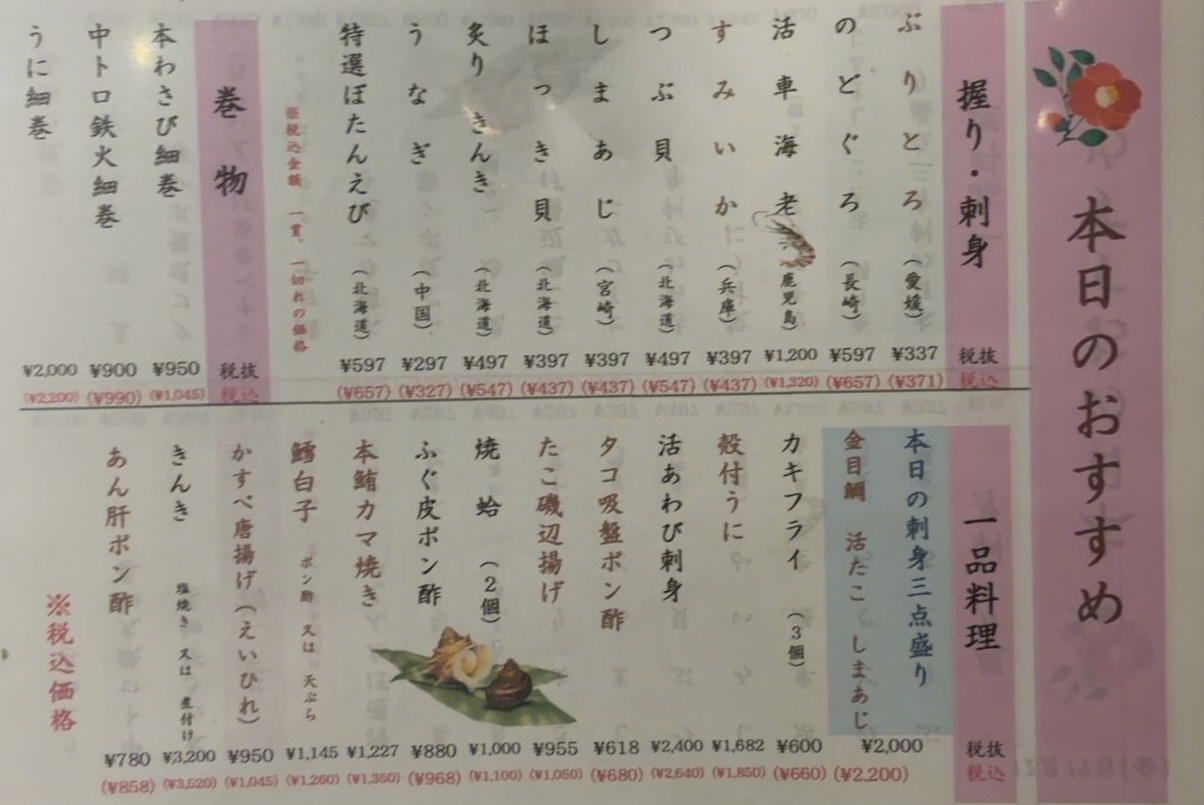 本日のおすすめ
握り・刺身 税抜 税込
ぶりとろ (愛媛) ¥337 (¥371)
のどぐろ (長崎) ¥597 (¥657)
活車海老 (鹿児島) ¥1,200 (¥1,320)
すみいか (兵庫) ¥397 (¥437)
つぶ貝 (北海道) ¥497 (¥547)
しまあじ (宮崎) ¥397 (¥437)
ほっき貝 (北海道) ¥397 (¥437)
炙りきんき (北海道) ¥497 (¥547)
うなぎ (中国) ¥297 (¥327)
特選ぼたんえび (北海道) ¥597 (¥657)
※税込金額 一貫、一切れの価格
巻物 税抜 税込
本わさび細巻 ¥950 (¥1,045)
中トロ鉄火細巻 ¥900 (¥990)
うに細巻 ¥2,000 (¥2,200)
一品料理 税抜 税込
本日の刺身三点盛り
金目鯛 活たこ しまあじ ¥2,000 (¥2,200)
カキフライ (3個) ¥600 (¥660)
殻付うに ¥1,682 (¥1,850)
活あわび刺身 ¥2,400 (¥2,640)
タコ吸盤ポン酢 ¥618 (¥680)
たこ磯辺揚げ ¥955 (¥1,050)
焼蛤 (2個) ¥1,000 (¥1,100)
ふぐ皮ポン酢 ¥880 (¥968)
本鮪カマ焼き ¥1,227 (¥1,350)
鱈白子 ポン酢 又は 天ぷら ¥1,145 (¥1,260)
かすべ唐揚げ(えいひれ) ¥950 (¥1,045)
きんき 塩焼き 又は 煮付け ¥3,200 (¥3,520)
あん肝ポン酢 ¥780 (¥858)
※税込価格